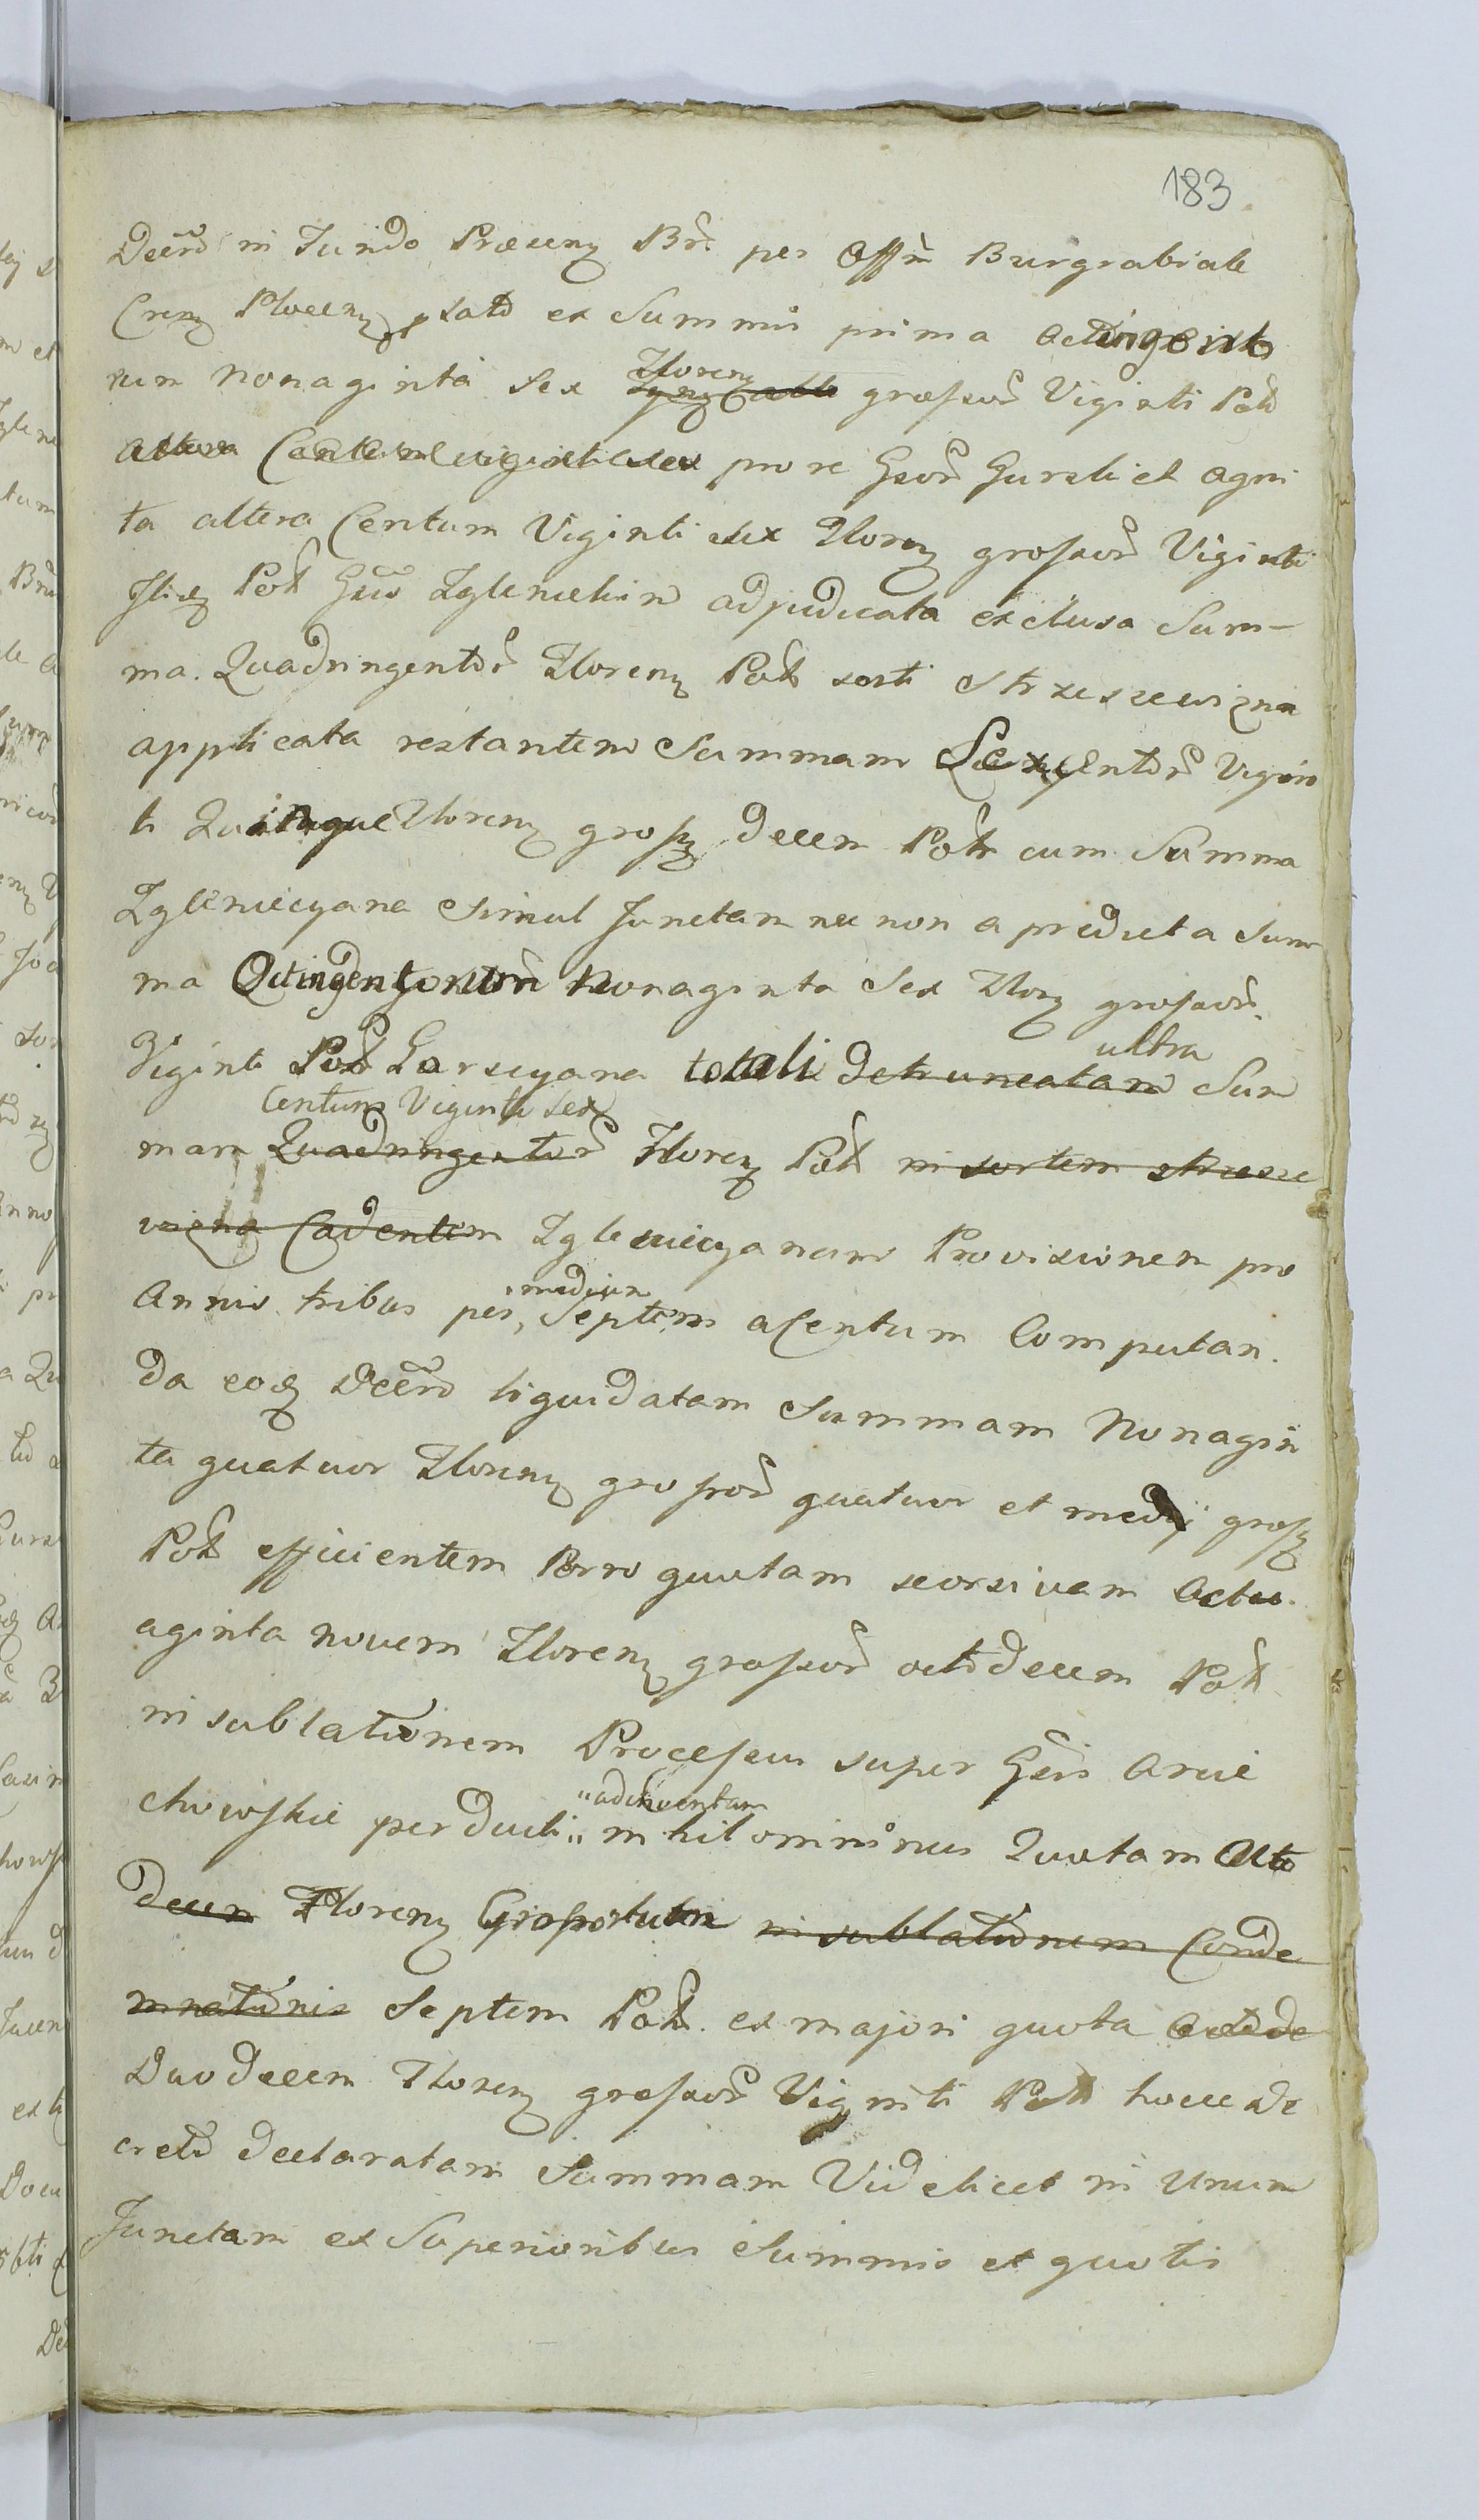 183
Decrõ in Fundo Præsenq Brĩ per Offm̃ Burgrabiale
Crenq Plocenq lato ex Summis prima Octingento
rum Nonaginta Sex Florenq grossor̃ Viginti Pol̃
altera Centum viginti sex pro re Gsor̃ Gurski et agni
ta altera Centum Viginti sex Florenq grossor̃ Viginti
Pol̃ Gsis Zglenickim adjudicata exclusa Sum-
ma. Quadringentor̃ Florenq Pol̃ sorti Strzeszewizna
applicata restantem Summam Sexcentor̃ Vigin
ti Quinque Florenq grossq decem Pol̃ cum Summa
Zglenicciana simul Junctam nec non a predicta Sum
ma Octingentorum Nonaginta Sex Florq grossor̃.
Viginti Pol̃ totali detruncatam ultra Sum
mam Quadringentor̃ Centum Viginti Sex Florenq Pol̃ in sortem strzesze
wizna Cadentem Zglenicyanam Provisionem pro
Annis tribus per, medium Septem a Centum Computan.
da eoq Decrõ liquidatam Summam Nonagin
ta quatuor Florenq grossor̃ quatuor et medij grossq
Pol̃ efficientem Porro quotam seorsivam Octu
aginta novem Florenq grossor̃ octodecem Pol̃
in sublationem Processus super Gsis Arcie
chowskie perducti „ adinventam „ nihilominus Quotam Octo
decem Florenq Grossorum in sublationem Conde
mnationis Septem Pol̃. ex majori quota octode
Duodecem Florenq grossor̃ Viginti Pol̃ hocce De
creto declaratam Summam Videlicet in Unum
Junctam ex Superioribus Summis et quotis